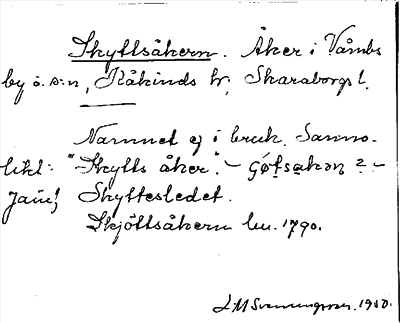 Skyttsåkern. Åker i Våmbs
by o. s:n, Kåkinds hd, Skaraborgs l.
Namnet ej i bruk. Sanno-
likt: "Skytts åker". –
Jämf Skyttesledet.
Skjöttsåkern lm. 1790.